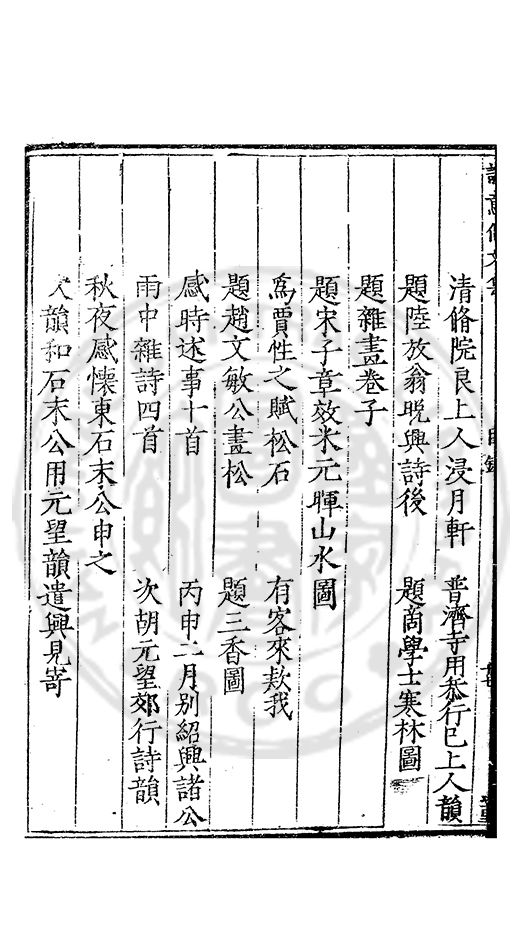 目錄
清脩院良上人浸月軒　普濟寺用恭行已上人韻
題陸放翁晚興詩後　題商學士寒林圖
題雜畫卷子
題宋子章效米元暉山水圖
為賈性之賦松石　有客來款我
題趙文敏公畫松　題三香圖
感時述事十首　丙申二月别紹興諸公
雨中雜詩四首　次胡元望郊行詩韻
秋夜感懷東石末公申之
次韻和石末公用元望韻遣興見寄